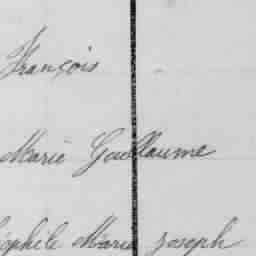 François
Marie Guillaume
éophile Marie Joseph